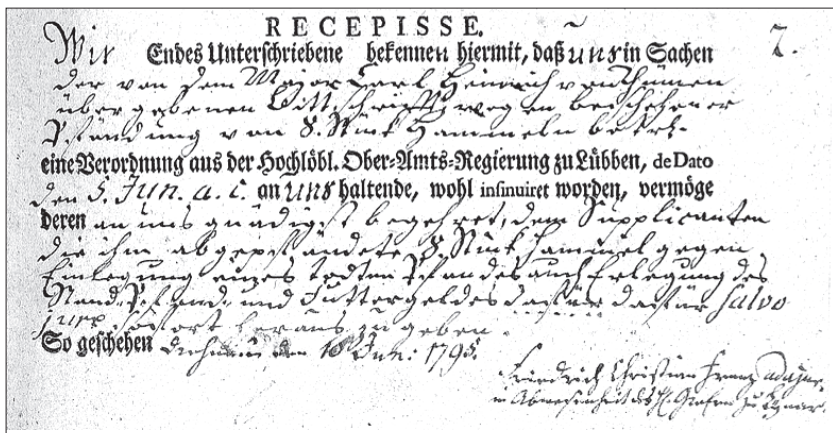 RECEPISSE.
Wir Endes Unterschriebene bekennen hiermit, daß uns in Sachen 2.
der von dem Major Carl Heinrich von Thümen
übergebenen Bittschrifft wegen beschehener
Pfändung von 8. Stück Hammeln betrl.
eine Verordnung aus der Hochlöbl. Ober-Amts-Regierung zu Lübben, de Dato
den 5. Jun. a. c. an uns haltende, wohl insinuiret worden, vermöge
deren an uns gnädigst begehret, dem Supplicanten
die ihm abgepfändete 8 Stück Hammel gegen
Einlegung eines todten Pfandes auch Erlegung des
Stand-, Pfand- und Futtergeldes dafür salvo
jure sofort heraus zu geben.
So geschehen den 10 Jun: 1795.
Friedrich Christian Franz
in Abwesenheit des H. Grafen zu Lynar.